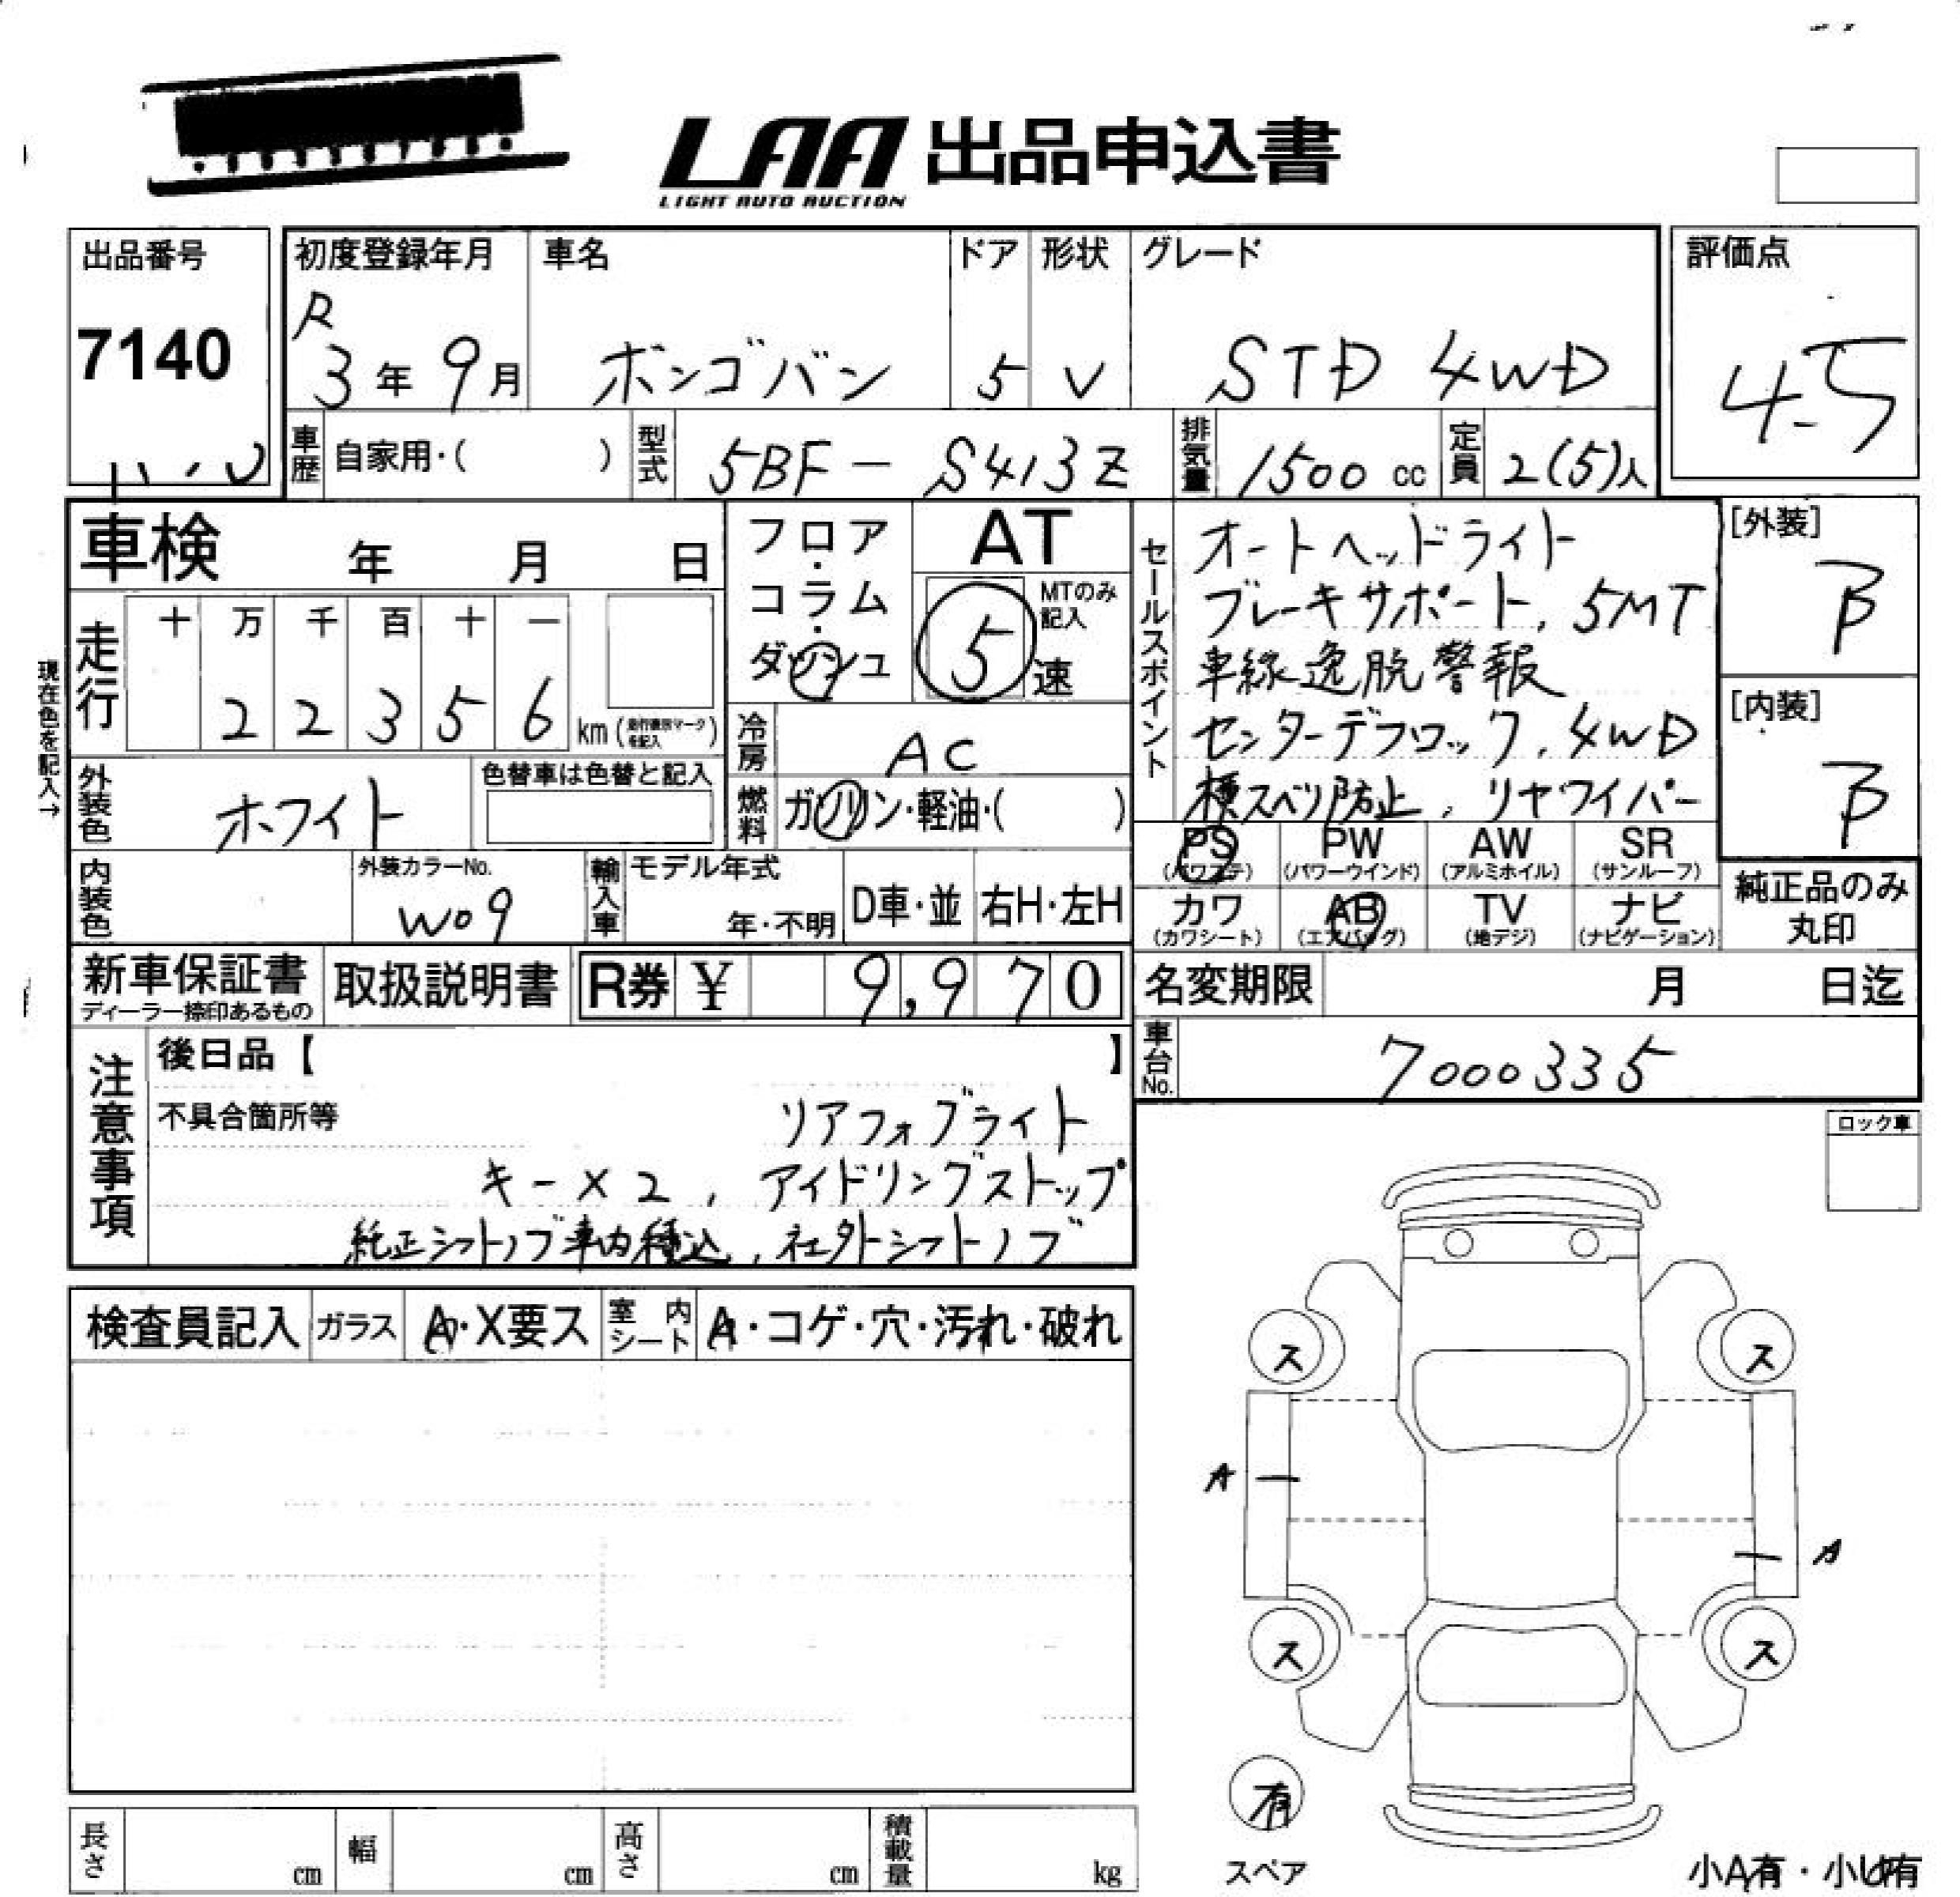 LAA 出品申込書
LIGHT AUTO AUCTION
出品番号
7140
初度登録年月
R
3年 9月
車名
ボンゴバン
ドア
5
形状
V
グレード
STD 4WD
評価点
4.5
車歴 自家用・( )
型式 5BF-S413Z
排気量 1500 cc
定員 2(5)人
車検 年 月 日
フロア・コラム・ダッシュ
AT
MTのみ記入
5 速
セールスポイント
オートヘッドライト
ブレーキサポート, 5MT
車線逸脱警報
センターデフロック, 4WD
横スベリ防止, リヤワイパー
[外装]
B
[内装]
B
現在色を記入→
走行
十 万 千 百 十 一
2 2 3 5 6 km
冷房 AC
燃料 ガソリン・軽油・( )
外装色 ホワイト
色替車は色替と記入
内装色
外装カラーNo.
W09
輸入車
モデル年式
年・不明
D車・並
右H・左H
PS (パワステ)
PW (パワーウインド)
AW (アルミホイル)
SR (サンルーフ)
カワ (カワシート)
AB (エアバッグ)
TV (地デジ)
ナビ (ナビゲーション)
純正品のみ
丸印
新車保証書
ディーラー捺印あるもの
取扱説明書
R券 ¥ 9,970
名変期限 月 日迄
車台No. 7000335
注意事項
後日品【 】
不具合箇所等
リアフォグライト
キー×2, アイドリングストップ
純正シフトノブ車内積込, 社外シフトノブ
ロック車
検査員記入
ガラス A・X要ス
室内シート A・コゲ・穴・汚れ・破れ
ス ス
A
A
ス ス
有
スペア
小A有・小U有
長さ cm
幅 cm
高さ cm
積載量 kg